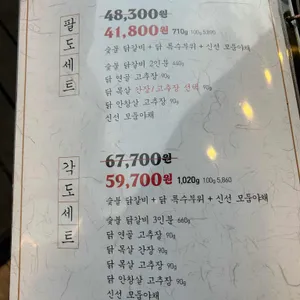 팔도세트
48,300원
41,800원 710g 100g 5,895
숯불 닭갈비 + 닭 특수부위 + 신선 모둠야채
숯불 닭갈비 2인분 440g
닭 연골 고추장 90g
닭 목살 간장/고추장 선택 90g
닭 안창살 고추장 90g
신선 모둠야채
각도세트
67,700원
59,700원 1,020g 100g 5,860
숯불 닭갈비 + 닭 특수부위 + 신선 모둠야채
숯불 닭갈비 3인분 660g
닭 연골 고추장 90g
닭 목살 간장 90g
닭 목살 고추장 90g
닭 안창살 고추장 90g
신선 모둠야채